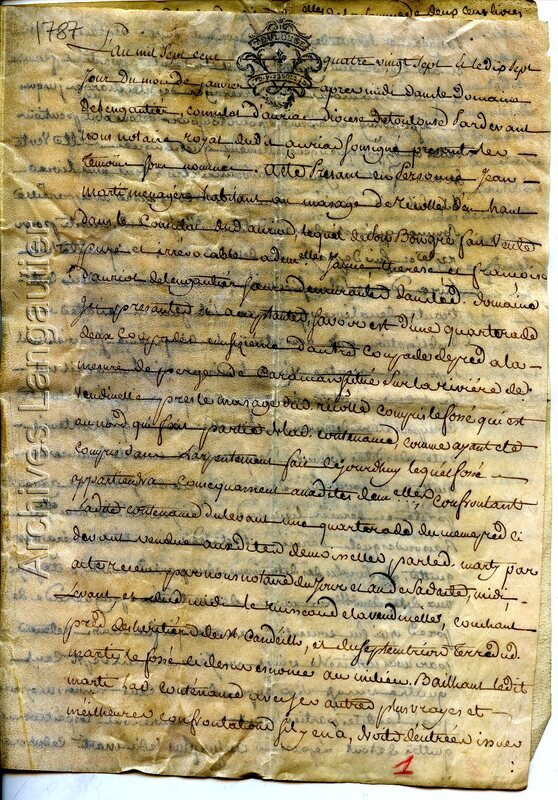 1787
L'an mil sept cent quatre vingt sept et le dix sept
jour du mois de janvier apres midi dans le domaine
de lengautier consulat d'auriac diocese de toulouse pardevant
nous notaire royal dud auriac soussigné presents les
temoins bas nommés. A eté presant en personne jean
marti menagere habitant au masage de ricolles d'en haut
dans le consulat dud auriac, lequel de son bon gré fait vente
pure et irrévocable a demelles jeanne, therese et françoise
d'auriol de lengautier sœurs demurantes dans led. domaine
ici presantes et acceptantes, savoir est d'une quarterade
deux coupades un sizieme d'autre coupade de pred a la
mesure de perge de Caraman situé sur la riviére de
vendinelle prez le masage des ricolles compris le fossé qui est
au nord qui fait partie de lad. contenance, comme ayant eté
compris dans l'arpentement fait ce jourdhuy lequel fossé
appartiendra consequament auxdites demelles, confrontant
ladite contenance du levant une quarterade du meme pred ci
devant vendue auxdites demoiselles, par led. marty par
acte retenu par nous notaire du jour et an de sa date, midi
levant, et dud midi le ruisseau de la vendinelles, couchant
pred des heritiers de Mr Candeille, et du septentrion terre dud.
marty le fossé ci dessus enoncé au milieu. Baillant ledit
marti lad. contenance avec ses autres plus vrayes et
meilheures confrontations s'il y en a, droits d'entrée issue
1
Archives Langautier